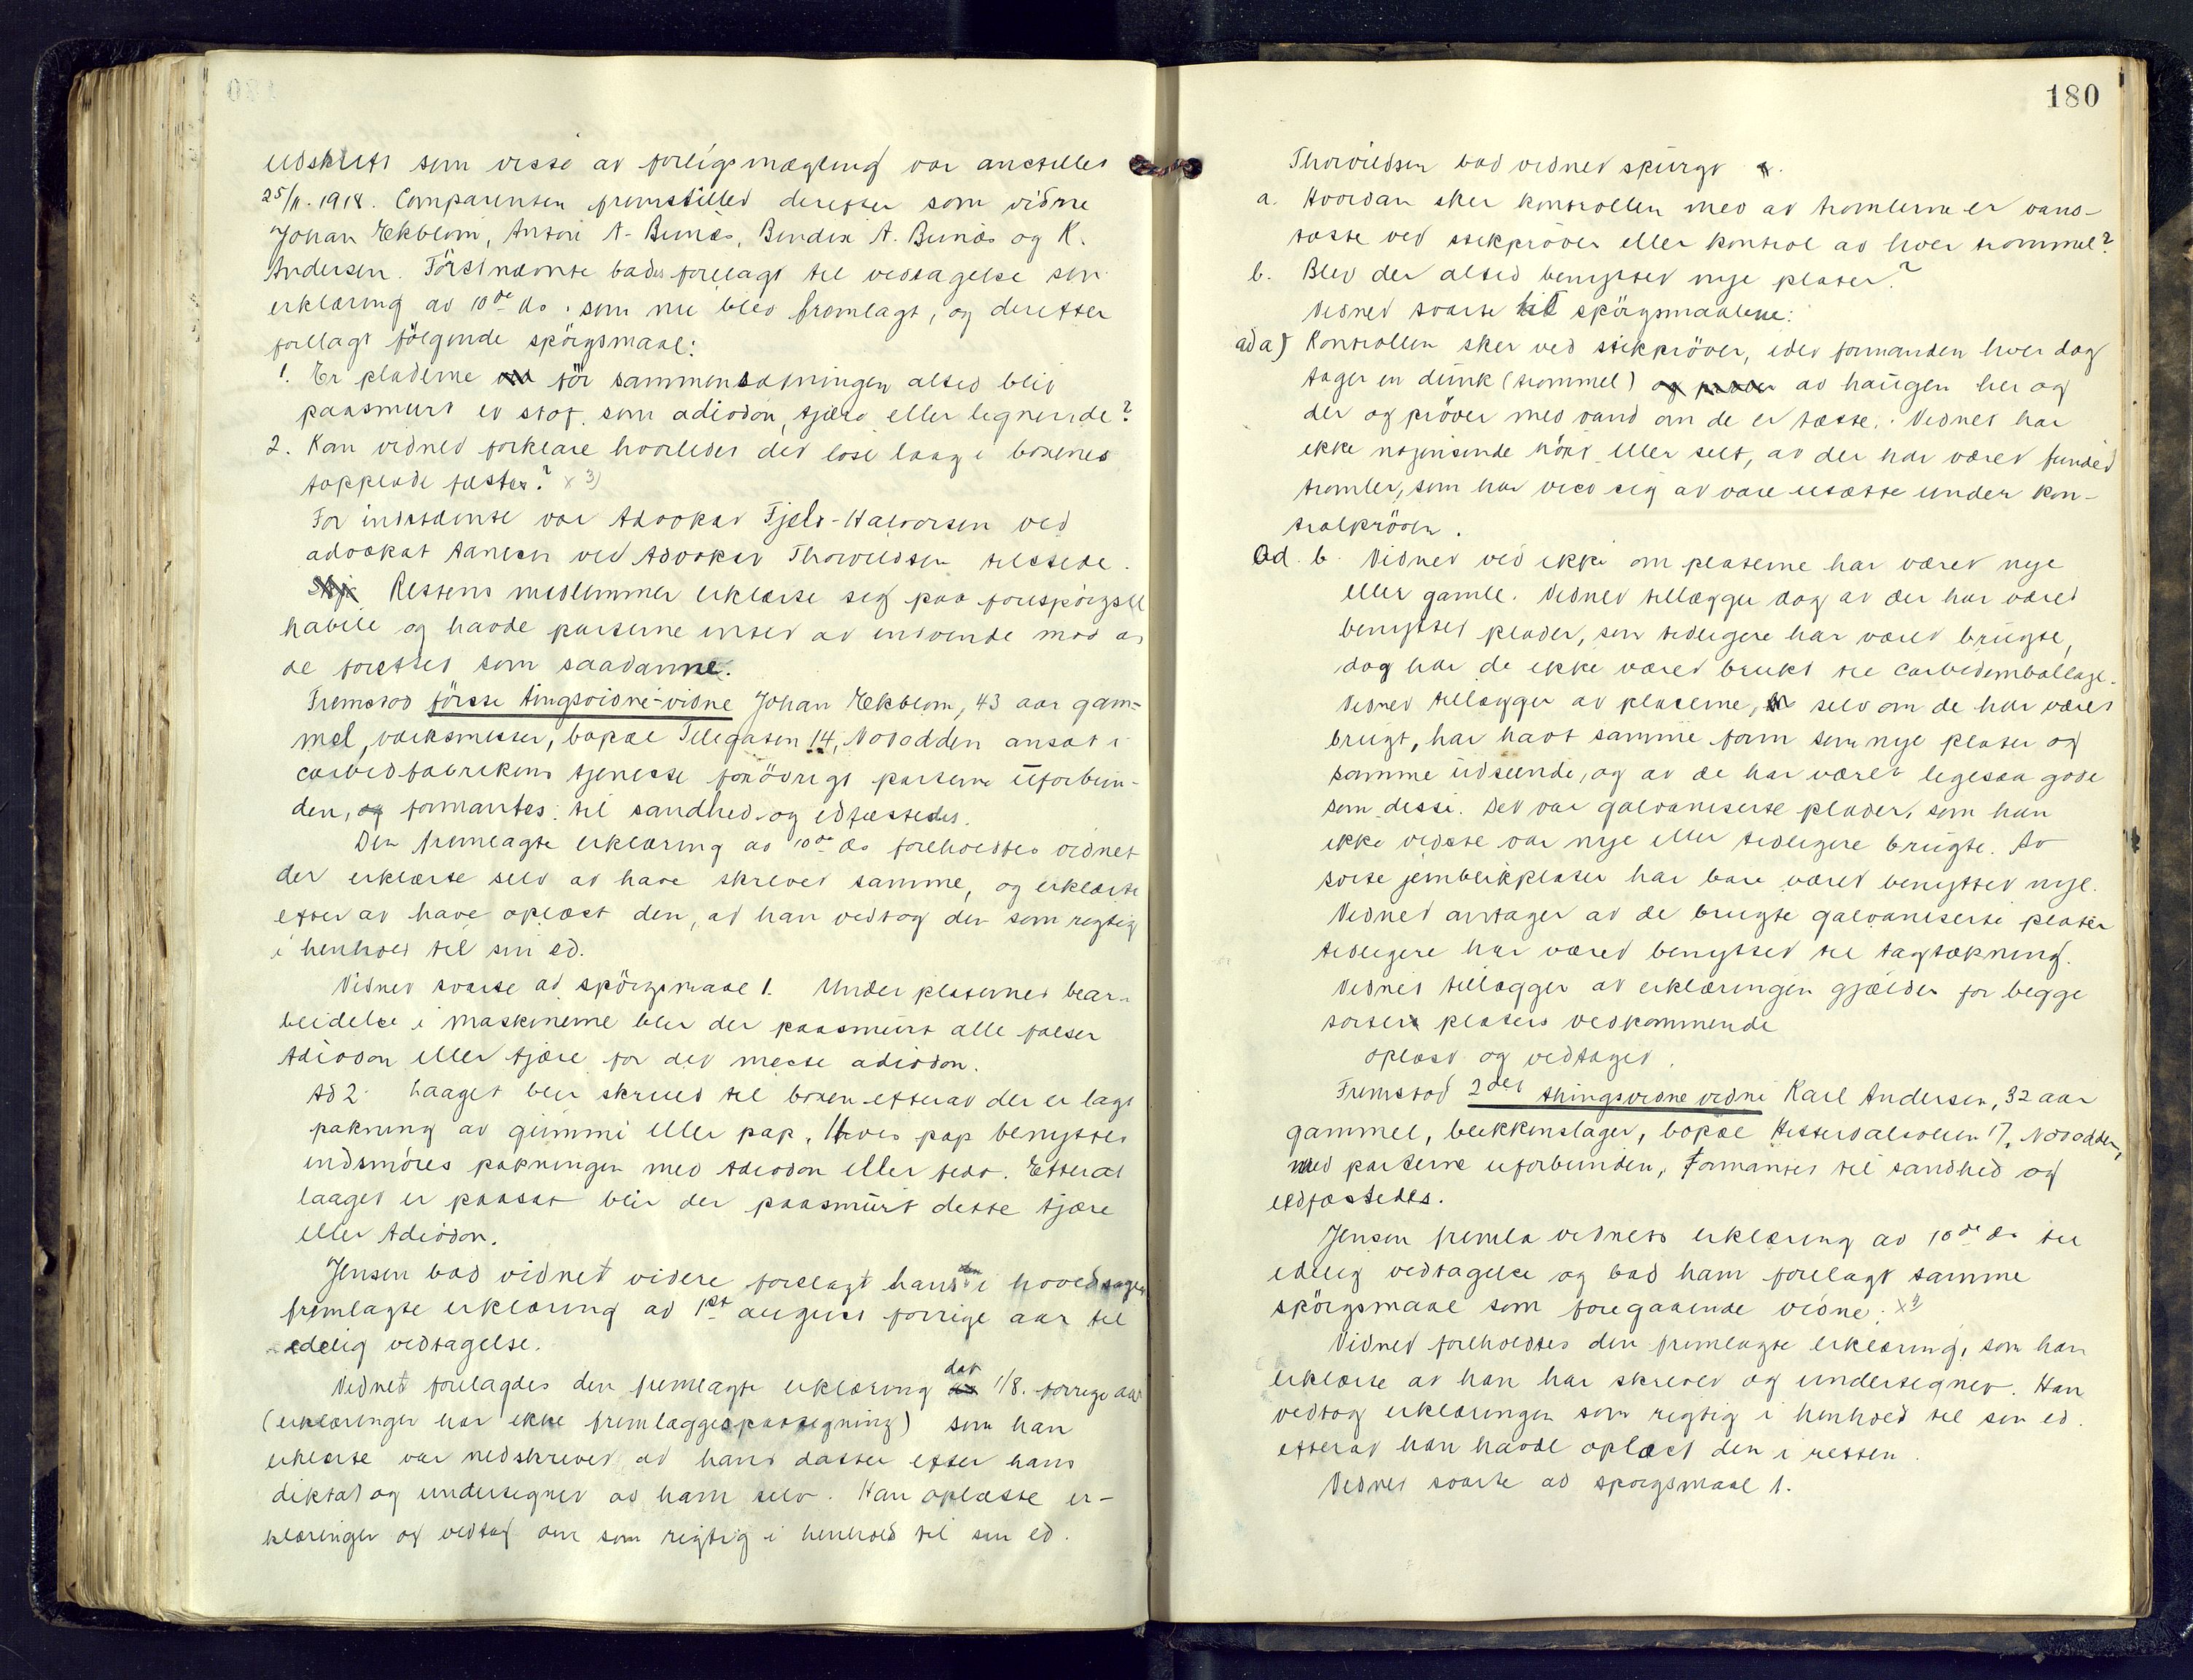 udskrift som viste at forligsmægling var anstillet
25/11. 1918. Comparenten fremstilled derefter som vidne
Johan Ekblom, Anton A. Bunæs, Bendix A. Bunæs og K.
Andersen. Förstnævnte bades forelagt til vedtagelse sin
erklæring av 10de ds. som nu blev fremlagt, og derefter
forelagt fölgende spörgsmaal:
1. Er pladerne för sammensætningen altid blit
paasmurt et stof som adiodon, tjære eller lignende?
2. Kan vidnet forklare hvorledes det löse laag i boxenes
toplade fæstes? x 3)
For indstævnte var Advokat Fjeld-Halvorsen ved
advokat Aanesen ved Advokat Thorvildsen tilstede.
Rettens medlemmer erklærte sig paa forespörgsel
habile og havde parterne intet at indvende mod at
de forettet som saadanne.
Fremstod förste tingsvidne-vidne Johan Ekblom, 43 aar gam-
mel, værksmester, bopæl Telegaten 14, Notodden ansat i
carbidfabrikens tjeneste forövrigt parterne uforbun-
den, formantes til sandhed og edfæstedes.
Den fremlagte erklæring av 10de ds foreholdtes vidnet
der erklærte selv at have skrevet samme, og erklærte
efter at have oplæst den, at han vedtog den som rigtig
i henhold til sin ed.
Vidnet svarte ad spörgsmaal 1. Under platernes bear-
beidelse i maskinerne blir der paasmurt alle falser
Adiodon eller tjære for det meste adiodon.
Ad 2. Laaget blir skruet til boxen efterat der er lagt
pakning av gummi eller pap. Hvis pap benyttes
indsmöres pakningen med Adiodon eller fedt. Efterat
laaget er paasat blir der paasmurt dette tjære
eller Adiodon.
Jensen bad vidnet videre forelagt hans den i hovedsagen
fremlagte erklæring av 1st august forrige aar til
edelig vedtagelse.
Vidnet forelagdes den fremlagte erklæring dat 1/8. forrige aar
(erklæringen har ikke fremlæggelsespaategning) som han
erklærte var nedskrevet av hans datter efter hans
diktat og undertegnet av ham selv. Han oplæste er-
klæringen og vedtog den som rigtig i henhold til sin ed.
180
Thorvildsen bad vidnet spurgt
a. Hvordan sker kontrollen med at tromlerne er vand-
tætte ved stikpröver eller kontrol av hver trommel?
b. Blev der altid benyttet nye plater?
Vidnet svarte til spörgsmaalene:
ad a) Kontrollen sker ved stikpröver, idet formanden hver dag
tager en dunk (trommel) av haugen her og
der og pröver med vand om de er tætte. Vidnet har
ikke nogensinde hört eller seet, at der har været fundet
tromler, som har vist sig at være utætte under kon-
trolpröven.
Ad. b. Vidnet ved ikke om platerne har været nye
eller gamle. Vidnet tillægger dog at der har været
benyttet plader, som tidligere har været brugte,
dog har de ikke været brukt til carbidemballage.
Vidnet tillægger at platerne, selv om de har været
brugt, har havt samme form som nye plater og
samme udseende, og at de har været likesaa gode
som disse. Det var galvaniserte plader, som han
ikke vidste var nye eller tidligere brugte. Av
sorte jernblikplater har bare været benyttet nye.
Vidnet antager at de brugte galvaniserte plater
tidligere har været benyttet til tagtækning.
Vidnet tillægger at erklæringen gjælder for begge
sorter platers vedkommende
oplæst og vedtaget.
Fremstod 2det thingsvidne vidne Karl Andersen, 32 aar
gammel, blikkenslager, bopæl Hitterdalsveien 17, Notodden,
med parterne uforbunden, formantes til sandhed og
edfæstedes.
Jensen fremla vidnets erklæring av 10de ds til
edelig vedtagelse og bad ham forelagt samme
spörgsmaal som foregaaende vidne. x3)
Vidnet foreholdtes den fremlagte erklæring, som han
erklærte at han har skrevet og undertegnet. Han
vedtog erklæringen som rigtig i henhold til sin ed.
efterat han havde oplæst den i retten.
Vidnet svarte ad spörgsmaal 1.